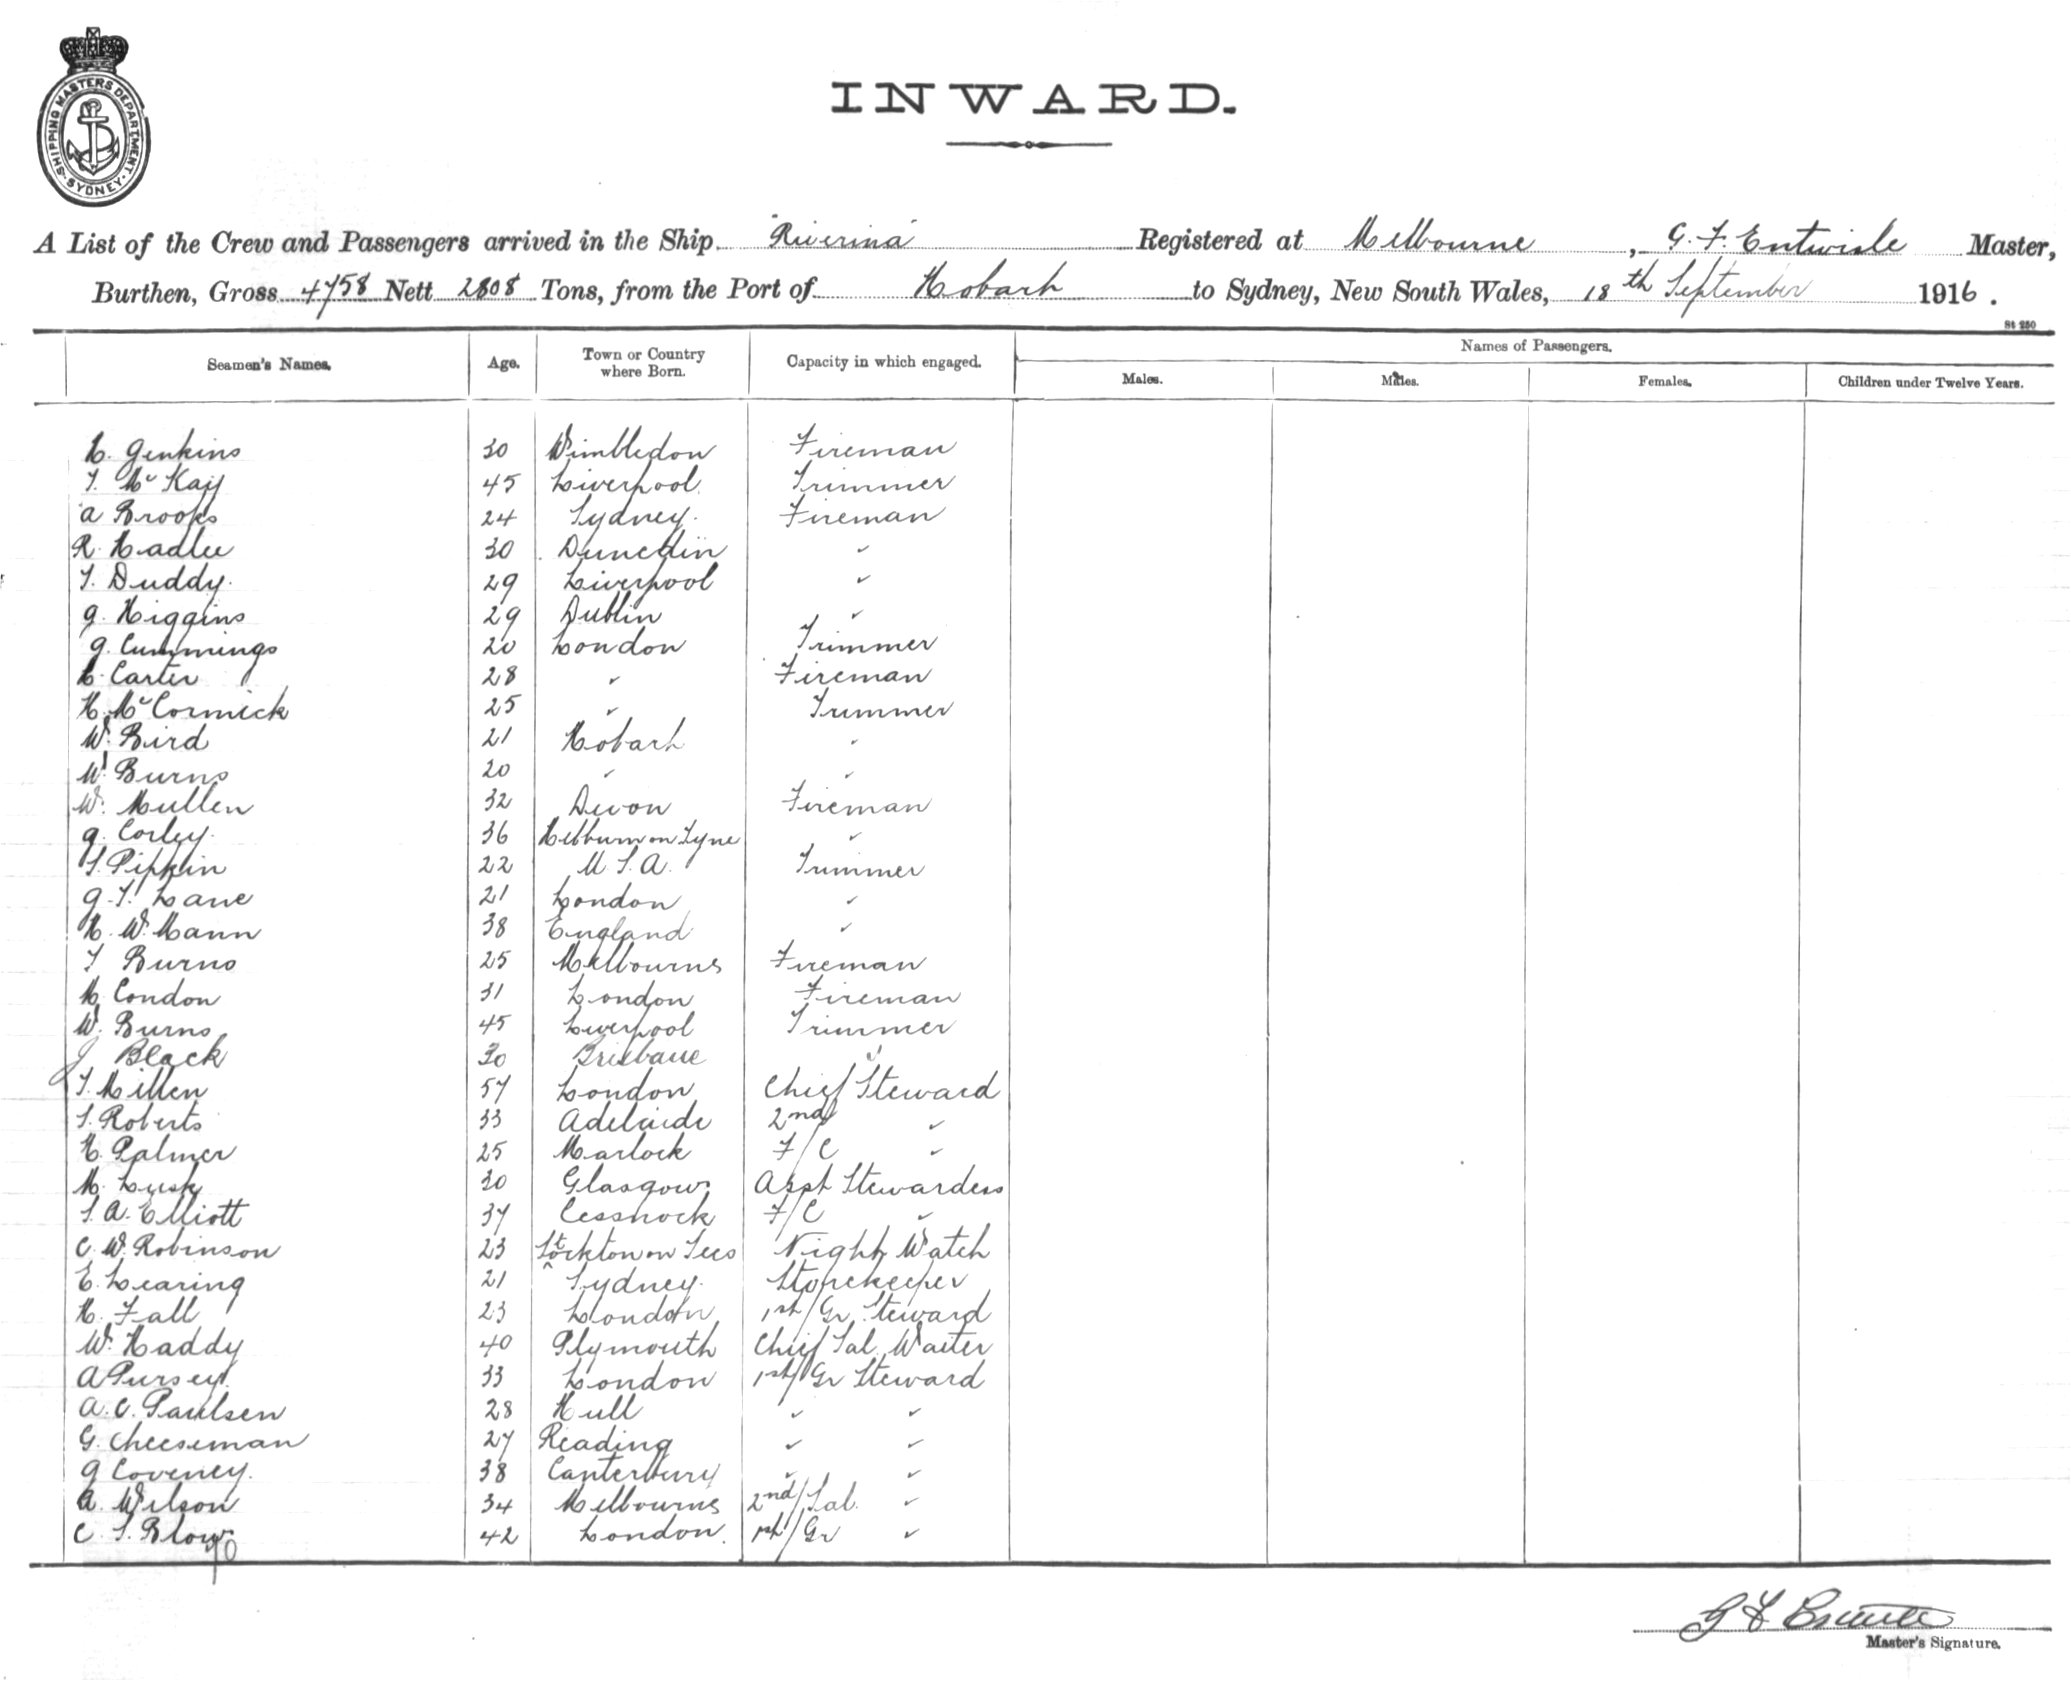 SHIPPING MASTERS DEPARTMENT. SYDNEY
INWARD.
A List of the Crew and Passengers arrived in the Ship "Riverina" Registered at Melbourne, G. F. Entwisle Master,
Burthen, Gross 4758 Nett 2808 Tons, from the Port of Hobart to Sydney, New South Wales, 18th September 1916.
St 250
Seamen's Names. Age. Town or Country where Born. Capacity in which engaged. Names of Passengers.
Males. Males. Females. Children under Twelve Years.
Jenkins 30 Wimbledon Fireman
T. McKay 45 Liverpool Trimmer
A Brooks 24 Sydney. Fireman
R. Hadlee 30 Dunedin "
T. Duddy. 29 Liverpool "
J. Higgins 29 Dublin "
J. Cummings 20 London Trimmer
Carter 28 " Fireman
H. McCormick 25 " Trimmer
W. Bird 21 Hobart "
W. Burns 20 " "
W. Mullen 32 Devon Fireman
J. Corley. 36 Hebburn on Tyne "
S. Pipkin 22 U.S.A. Trimmer
J. T. Lane 21 London "
H. W. Mann 38 England "
T Burns 25 Melbourne Fireman
Condon 31 London Fireman
W. Burns 45 Liverpool Trimmer
J Black 30 Brisbane "
T. Millen 57 London Chief Steward
S. Roberts 33 Adelaide 2nd "
H. Palmer 25 F/C "
M. Lusk 30 Glasgow Asst Stewardess
S. A. Elliott 37 Cessnock F/C "
C. W. Robinson 23 Stockton on Tees Night Watch
E. Learing 21 Sydney. Storekeeper
H. Fall 23 London 1st/Gr Steward
W. Haddy 40 Plymouth Chief Sal. Waiter
A Pursey 33 London 1st/Gr Steward
A. C. Paulsen 28 Hull " "
G. Cheeseman 27 Reading " "
J Coveney. 38 Canterbury " "
A. Wilson 34 Melbourne 2nd/Sal. "
C. S. Blow 42 London. 1st/Gr "
Master's Signature.